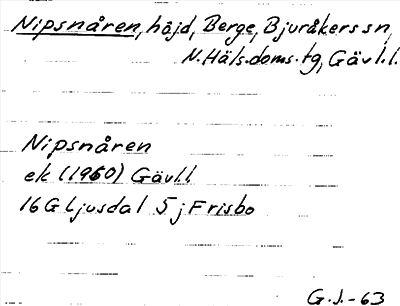 Nipsnåren, höjd, Berge, Bjuråkers sn,
N. Häls. doms. tg, Gävl.l.
Nipsnåren
ek (1960) Gävl.l.
16G Ljusdal 5j Frisbo
G.J.-63